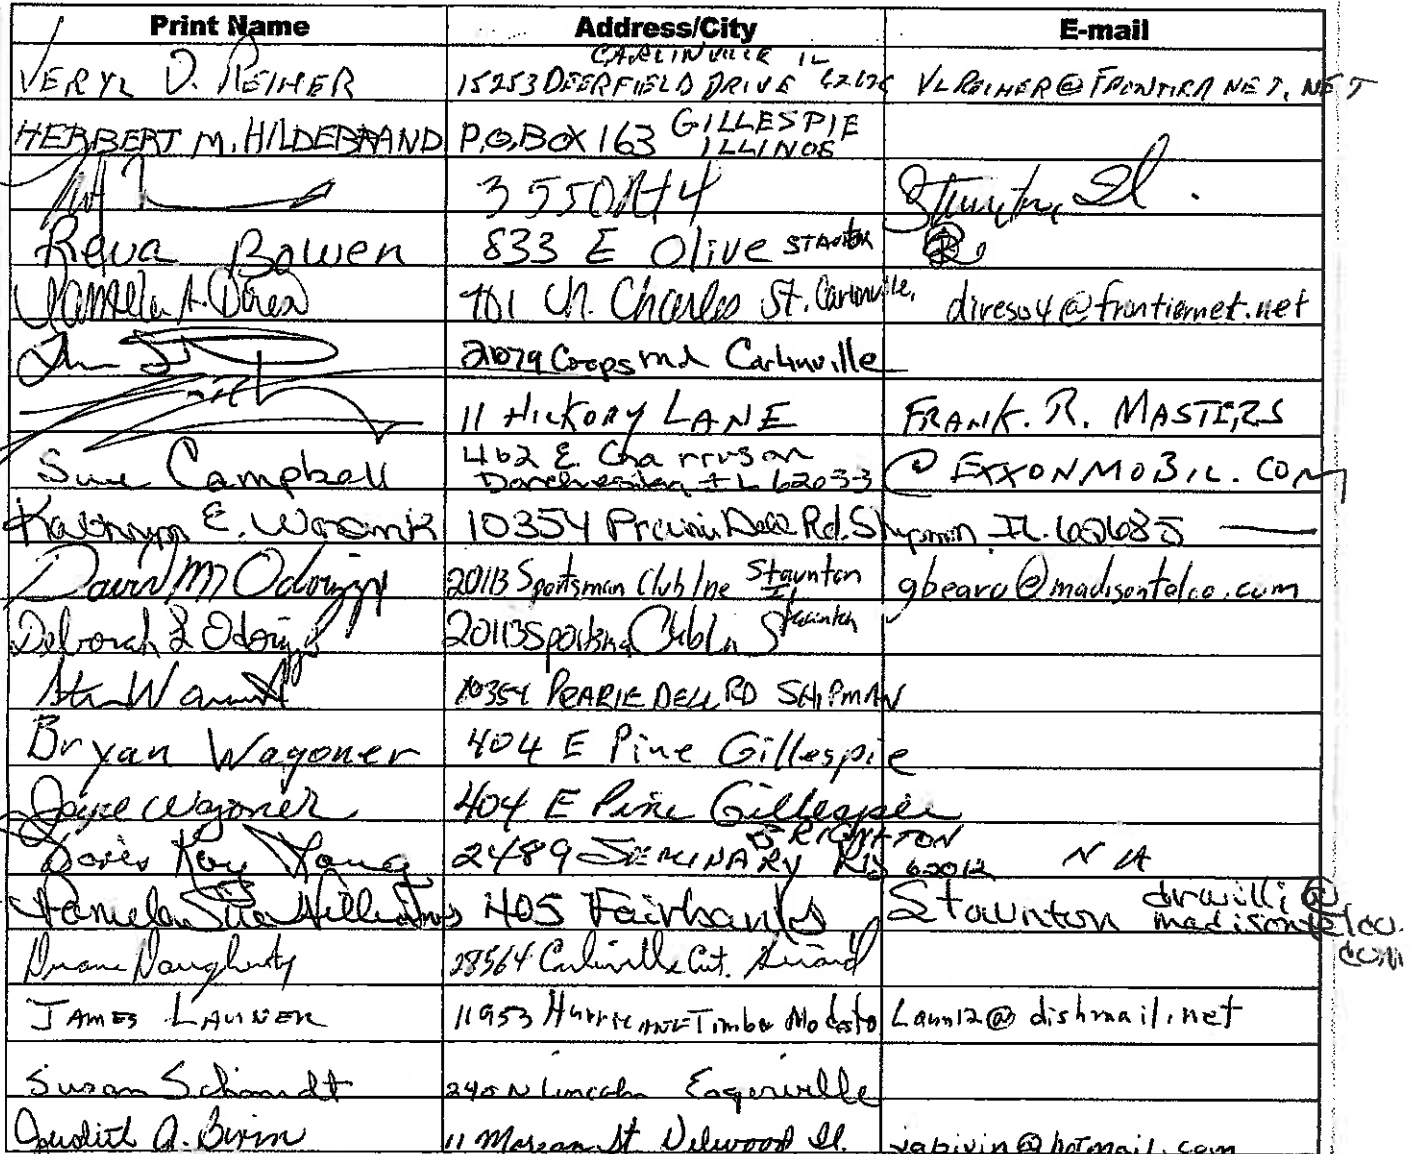 Print Name Address/City E-mail
VERYL D. REIHER 15253 DEERFIELD DRIVE CARLINVILLE IL 62626 VLREIHER@FRONTIRANET.NET
HERBERT M. HILDEBRAND P.O. BOX 163 GILLESPIE ILLINOS
Staunton, Il.
Reva Bowen 833 E Olive STAUNTON
Pamela A. Dires 701 N. Charles St. Carlinville, direso4@frontiernet.net
Carlinville
11 HICKORY LANE FRANK.R.MASTERS
Sue Campbell 462 E. Dorchester IL 62033 @EXXONMOBIL.COM
Kathryn E. 10354 Rd. Shipman IL. 62685
David M Odorizzi 20113 Sportsman Club lne Staunton Il gbearo@madisontelco.com
Deborah L Odorizzi 20113 Staunton
10354 PEARIE DELL RD SHIPMAN
Bryan Wagoner 404 E Pine Gillespie
Joyce Wagoner 404 E Pine Gillespie
Doris Kay Young 2489 SEMINARY RD BRIGHTON 62012 NA
Pamela Sue Williams 405 Fairbanks Staunton drwilli@madisontelco.com
Duane Daugherty 28564 Carlinville Cut. Girard
JAMES LAUNER 11953 Hurricane Timber Modesto Laun12@dishmail.net
Susan Schmidt 240 N Lincoln Eagerville
Judith A. Bivin 11 Morgan St Nilwood Il. jabivin@hotmail.com